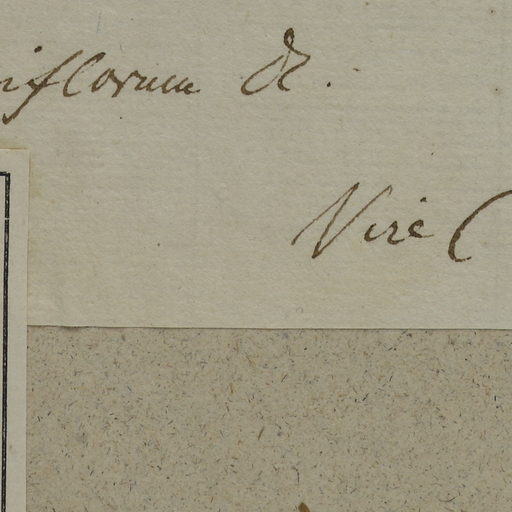 iflorum DC.
Vire (